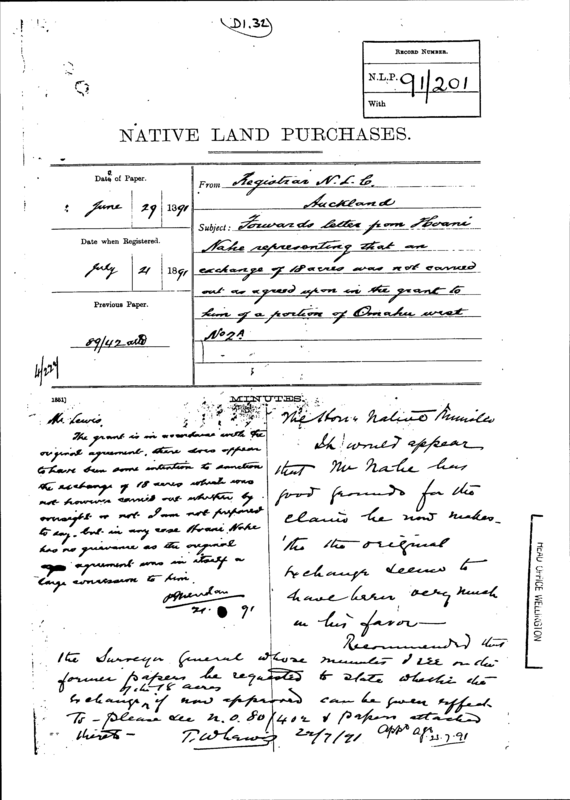 D1.32
RECORD NUMBER.
N.L.P. 91/201
With
NATIVE LAND PURCHASES.
Date of Paper.
June 29 1891
Date when Registered.
July 21 1891
Previous Paper.
89/42
4/224
From Registrar N.L.C.
Auckland
Subject: Forwards letter from Hoani
Nahe representing that an
exchange of 18 acres was not carried
out as agreed upon in the grant to
him of a portion of Omahu west
No 2A
1351]
MINUTES.
Mr. Lewis.
The grant is in accordance with the
original agreement. there does appear
to have been some intention to sanction
the exchange of 18 acres which was
not however carried out whether by
oversight or not I am not prepared
to say. but in any case Hoani Nahe
has no grievance as the original
agreement was in itself a
large concession to him.
PSheridan
21. 91
The Hon. Native Minister
It would appear
that Mr Nahe has
good grounds for the
claim he now makes.
tho the original
exchange seems to
have been very much
in his favor—
Recommended that
the Surveyor General whose minutes I see on the
former papers be requested to state whether the
exchange of the 18 acres if now approved can be given effect
to— please see N.O. 80/402 & papers attached
thereto—
T.W Lewis 22/7/91
23.7.91
HEAD OFFICE WELLINGTON